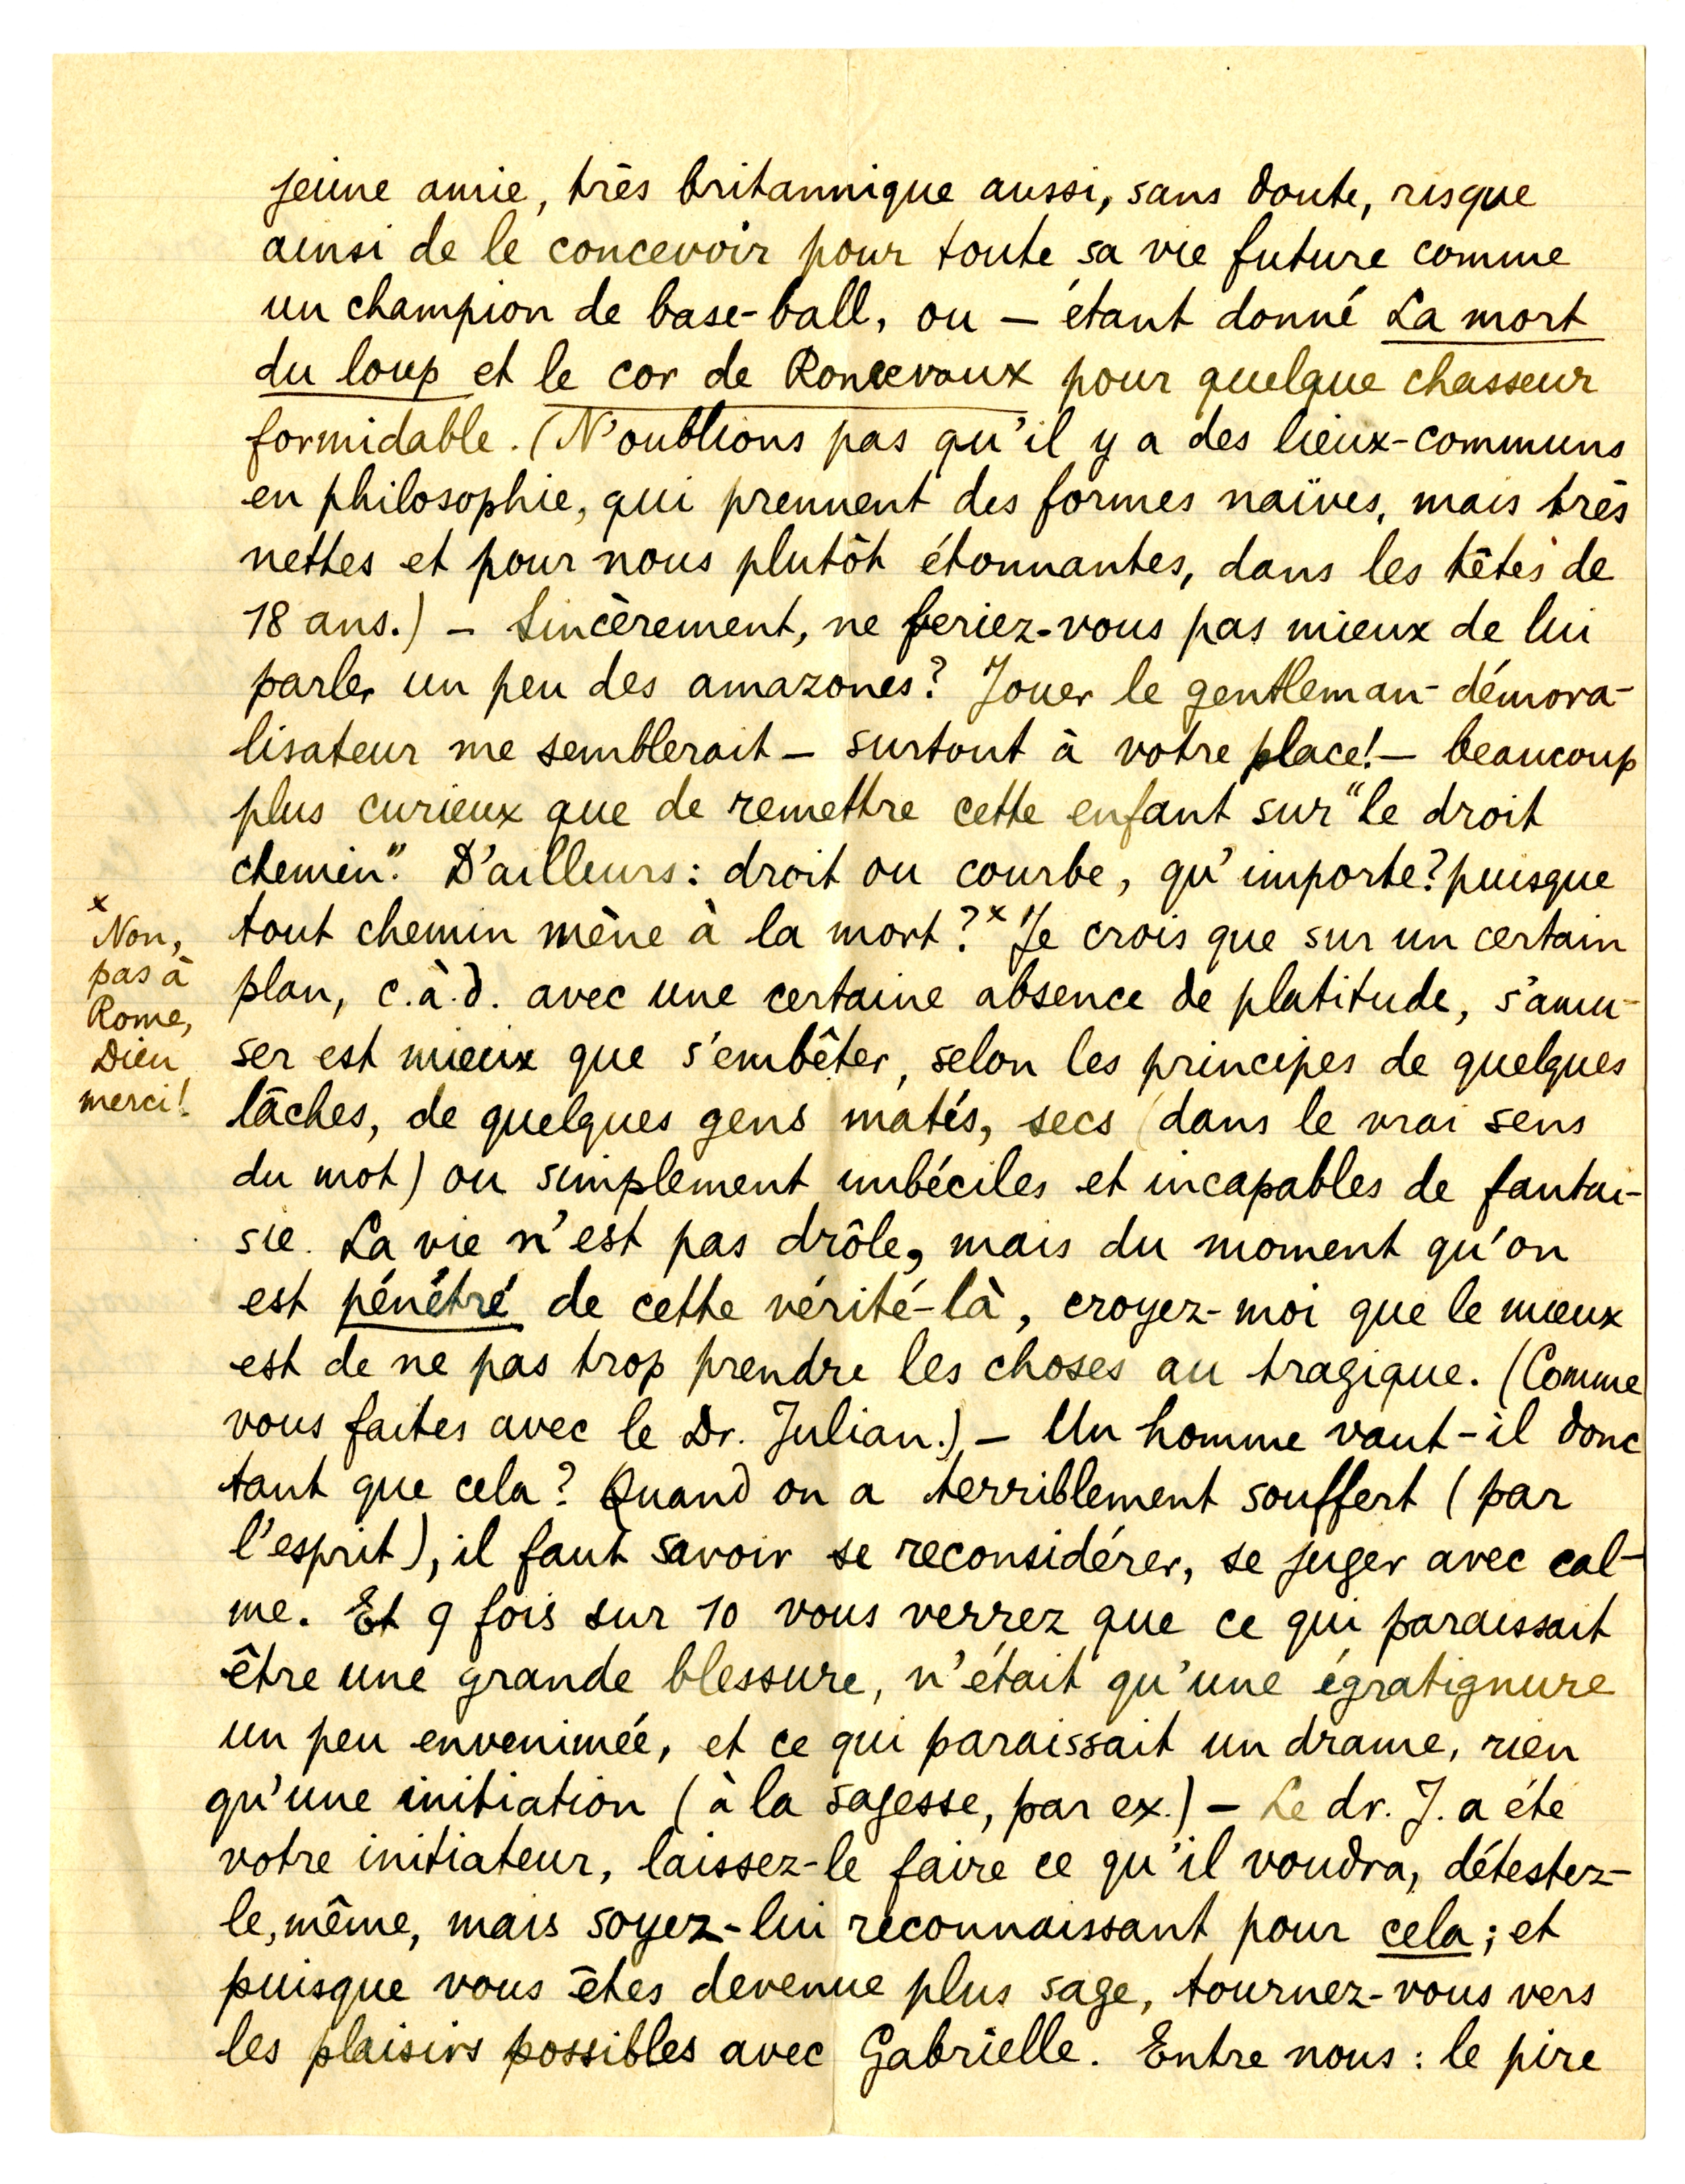 jeune amie, très britannique aussi, sans doute, risque
ainsi de le concevoir pour toute sa vie future comme
un champion de base-ball, ou — étant donné La mort
du loup et le cor de Roncevaux pour quelque chasseur
formidable. (N'oublions pas qu'il y a des lieux-communs
en philosophie, qui prennent des formes naïves, mais très
nettes et pour nous plutôt étonnantes, dans les têtes de
18 ans.) — Sincèrement, ne feriez-vous pas mieux de lui
parler un peu des amazones? Jouer le gentleman-démora-
lisateur me semblerait — surtout à votre place! — beaucoup
plus curieux que de remettre cette enfant sur "le droit
chemin". D'ailleurs: droit ou courbe, qu'importe? puisque
tout chemin mène à la mort?x Je crois que sur un certain
plan, c.à.d. avec une certaine absence de platitude, s'amu-
ser est mieux que s'embêter, selon les principes de quelques
lâches, de quelques gens matés, secs (dans le vrai sens
du mot) ou simplement imbéciles et incapables de fantai-
sie. La vie n'est pas drôle, mais du moment qu'on
est pénétré de cette vérité-là, croyez-moi que le mieux
est de ne pas trop prendre les choses au tragique. (Comme
vous faites avec le Dr. Julian.) — Un homme vaut-il donc
tant que cela? Quand on a terriblement souffert (par
l'esprit), il faut savoir se reconsidérer, se juger avec cal-
me. Et 9 fois sur 10 vous verrez que ce qui paraissait
être une grande blessure, n'était qu'une égratignure
un peu envenimée, et ce qui paraissait un drame, rien
qu'une initiation (à la sagesse, par ex.) — Le dr. J. a été
votre initiateur, laissez-le faire ce qu'il voudra, détestez-
le, même, mais soyez-lui reconnaissant pour cela; et
puisque vous êtes devenue plus sage, tournez-vous vers
les plaisirs possibles avec Gabrielle. Entre nous: le pire
x
Non,
pas à
Rome,
Dieu
merci!